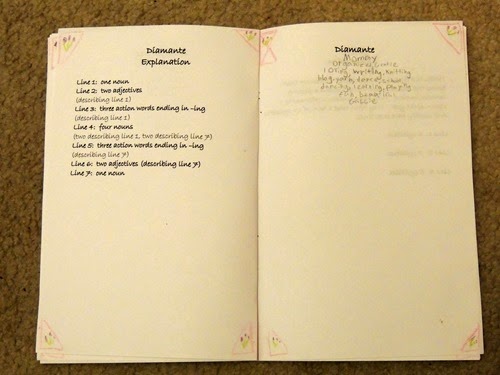 Diamante
Explanation
Line 1: one noun
Line 2: two adjectives
(describing line 1)
Line 3: three action words ending in -ing
(describing line 1)
Line 4: four nouns
(two describing line 1, two describing line 7)
Line 5: three action words ending in -ing
(describing line 7)
Line 6: two adjectives (describing line 7)
Line 7: one noun
Diamante
Mommy
writing, knitting
blog, yarn, dance, school